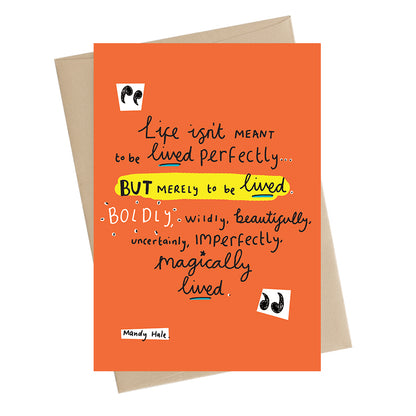 "
Life isn't MEANT
to be lived perfectly...
BUT MERELY to be lived
BOLDLY, wildly, beautifully,
uncertainly, IMPerfectly,
magically
lived.
"
Mandy Hale.